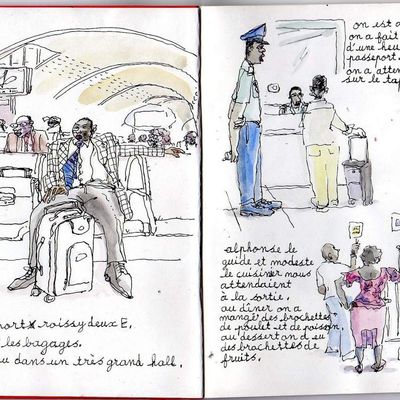 port roissy deux E.
les bagages.
u dans un très grand hall.
on est a
on a fait
d'une heu
passeport
on a atten
sur le tap
alphonse le
guide et modeste
le cuisinier nous
attendaient
à la sortie.
au dîner on a
mangé des brochettes
de poulet et de poison.
au dessert on a eu
des brochettes de
fruits.